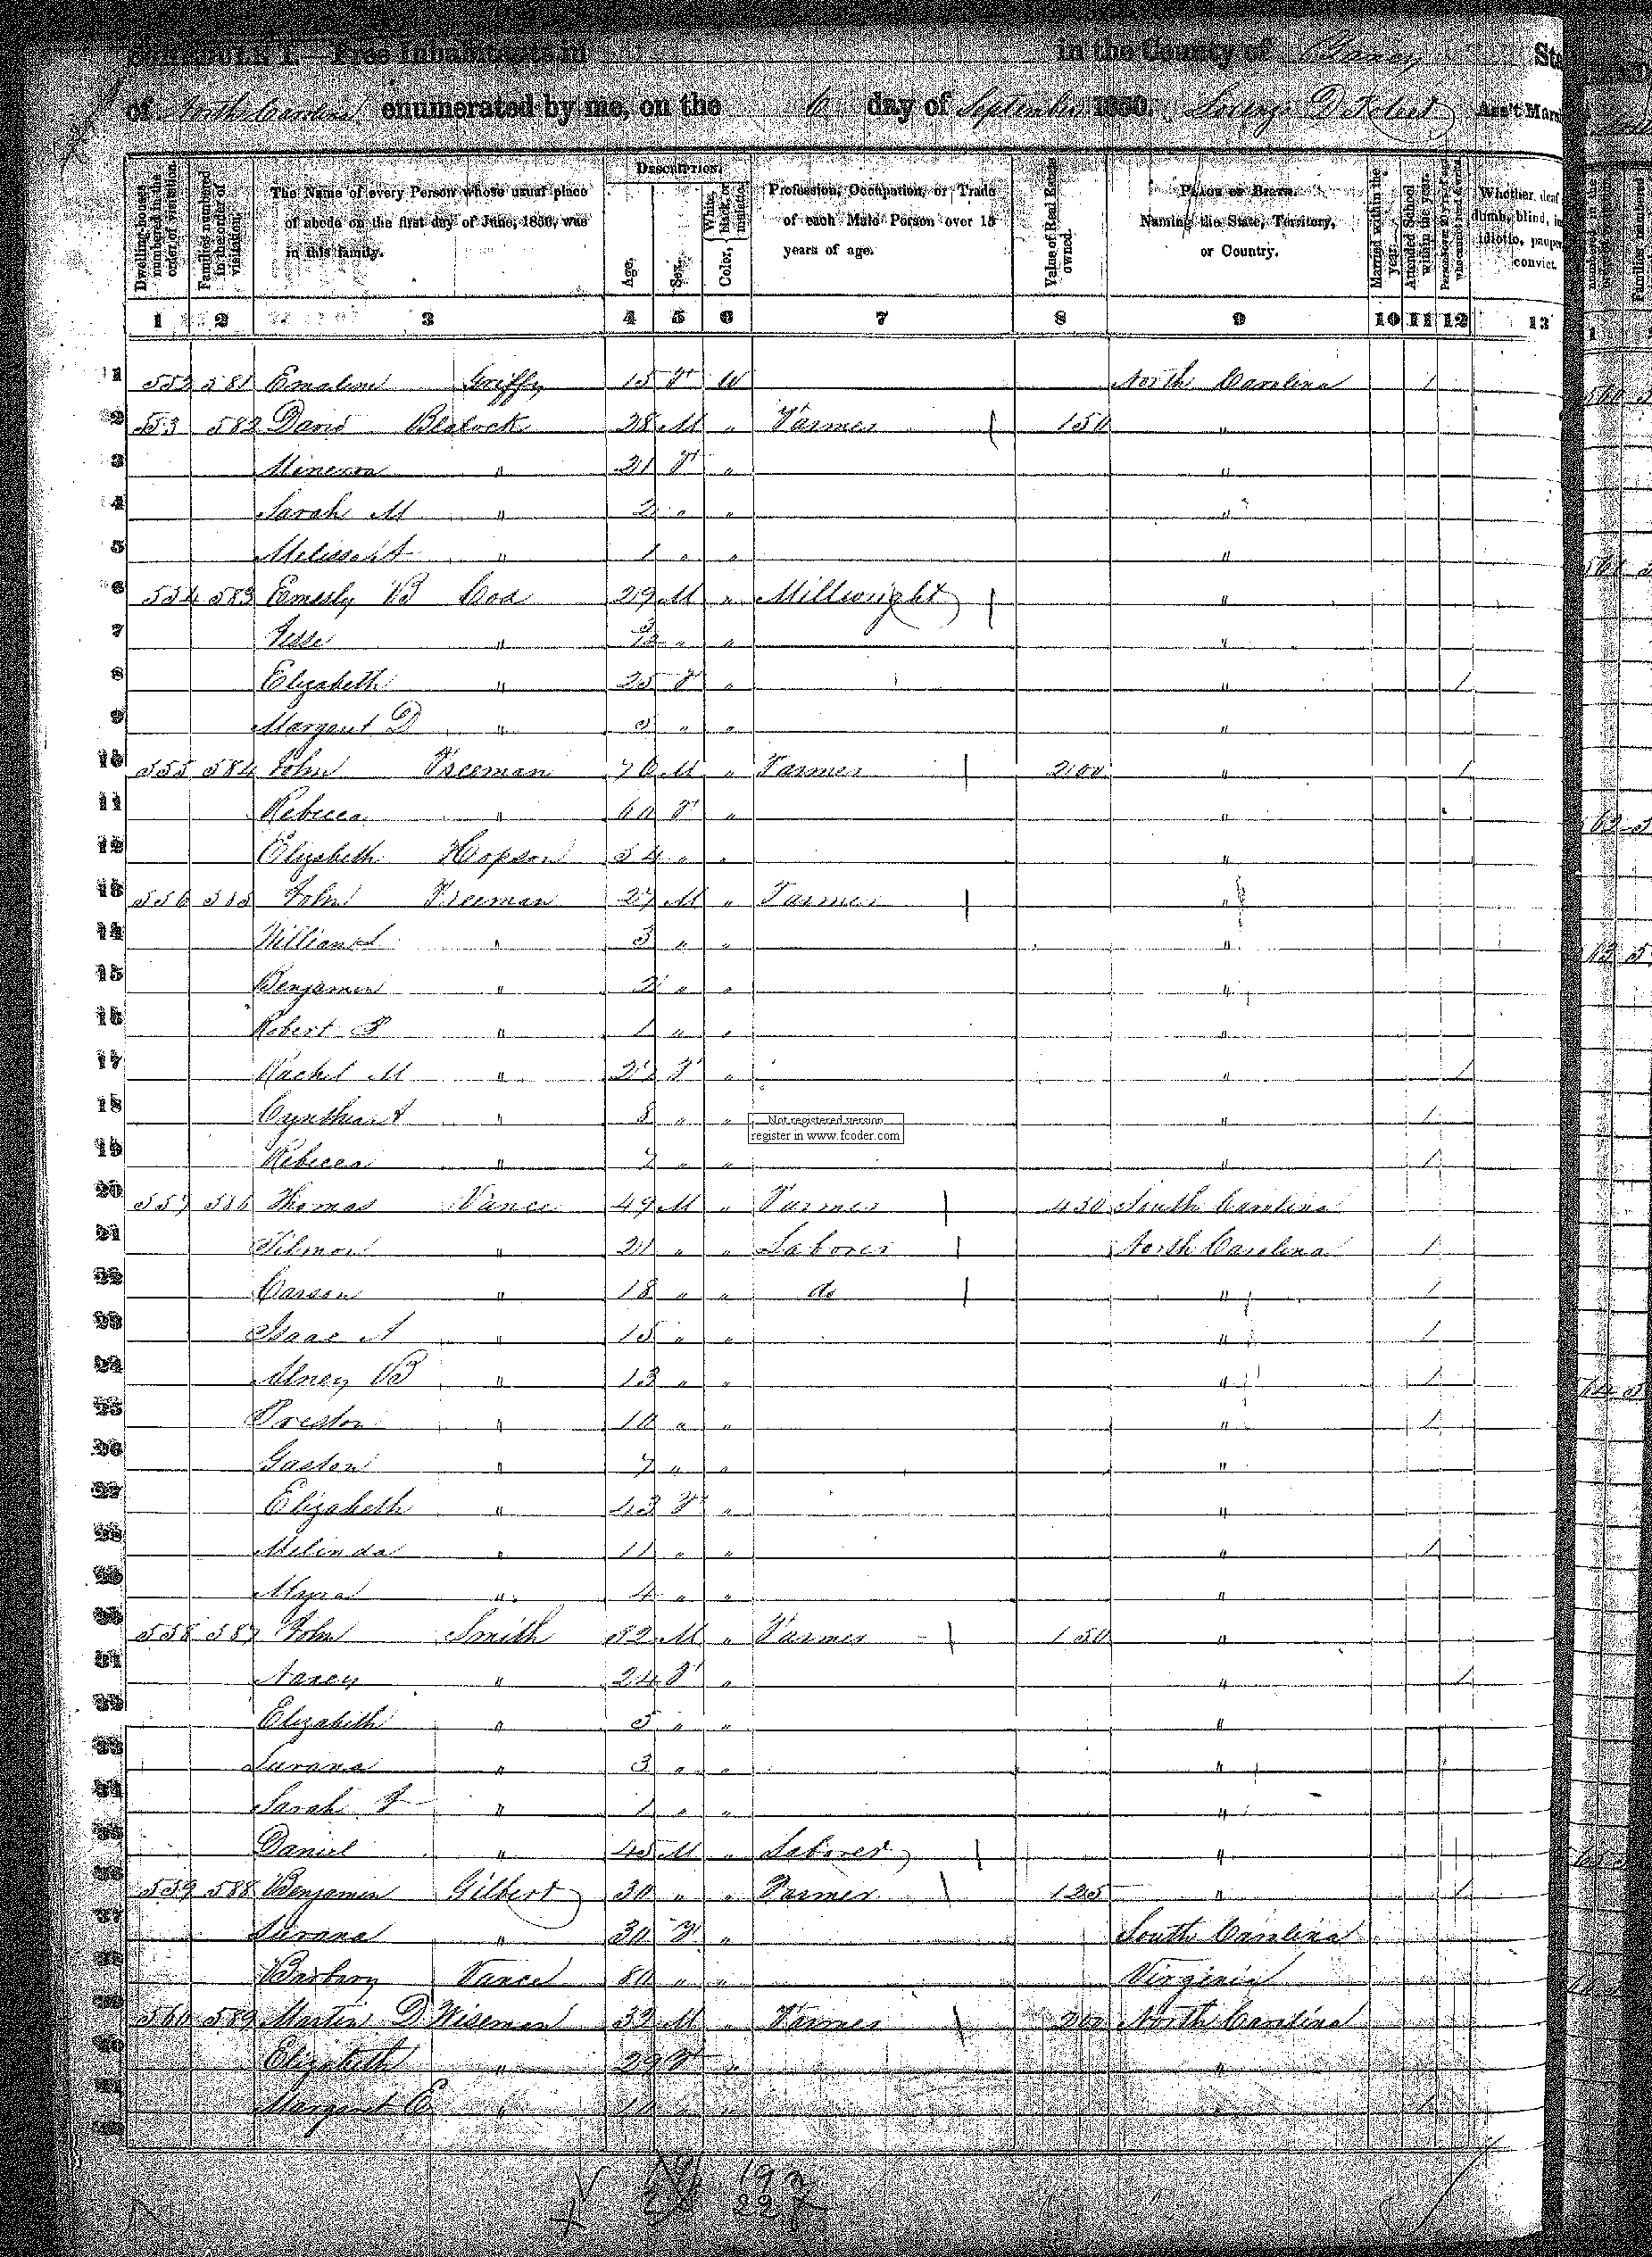 SCHEDULE I.—Free Inhabitants in in the County of Yancey
of North Carolina enumerated by me, on the 6 day of September 1850. Lorenzo D Ass't Mars
Dwelling-houses numbered in the order of visitation.
Families numbered in the order of visitation.
The Name of every Person whose usual place of abode on the first day of June, 1850, was in this family.
DESCRIPTION.
Age.
Sex.
Color, White, black, or mulatto.
Profession, Occupation, or Trade of each Male Person over 15 years of age.
Value of Real Estate owned.
PLACE OF BIRTH. Naming the State, Territory, or Country.
Married within the year.
Attended School within the year.
Persons over 20 y'rs of age who cannot read & write.
Whether deaf dumb, blind, idiotic, pauper convict.
1 2 3 4 5 6 7 8 9 10 11 12 13
1 552 581 Emaline Griffy 15 F W North Carolina 1
2 553 582 David Blalock 28 M " Farmer 150 "
3 Minerva " 21 F " "
4 Sarah M " 2 " " "
5 Melissa A " 1 " " "
6 554 583 Emesly B Cox 29 M " Millwright "
7 Jesse " 3/12 " " "
8 Elizabeth " 25 F " " 1
9 Margaret D " " " "
10 555 584 John Freeman 76 M " Farmer 200 " 1
11 Rebecca " 60 F " "
12 Elizabeth Hopson 54 " " "
13 556 585 John Freeman 27 M " Farmer "
14 William " 3 " " "
15 Benjamin " 2 " " "
16 Robert P " 1 " " "
17 Rachel M " 27 F " " 1
18 Cynthia A " 8 " " " 1
Not registered version
register in www.fcoder.com
19 Rebecca " 7 " " " 1
20 557 586 Thomas Vance 49 M " Farmer 450 South Carolina
21 Tilmon " 21 " " Laborer North Carolina 1
22 Carson " 18 " " do " 1
23 Isaac A " 15 " " " 1
24 Alney B " 13 " " " 1
25 Preston " 10 " " " 1
26 Gaston " 7 " " "
27 Elizabeth " 43 F " "
28 Melinda " 11 " " " 1
29 Myra " 4 " " "
30 558 587 John Smith 32 M " Farmer 150 "
31 Nancy " 24 F " " 1
32 Elizabeth " 5 " " "
33 Surana " 3 " " "
34 Sarah " 1 " " "
35 Daniel " 45 M " Laborer " 1
36 559 588 Benjamin Gilbert 30 " " Farmer 125 " 1
37 Surana " 30 F " South Carolina
38 Barbary Vance 80 " " Virginia
39 560 589 Martin D Wiseman 32 M " Farmer 200 North Carolina
40 Elizabeth " 29 F " "
41 Margaret E " " " 1
42